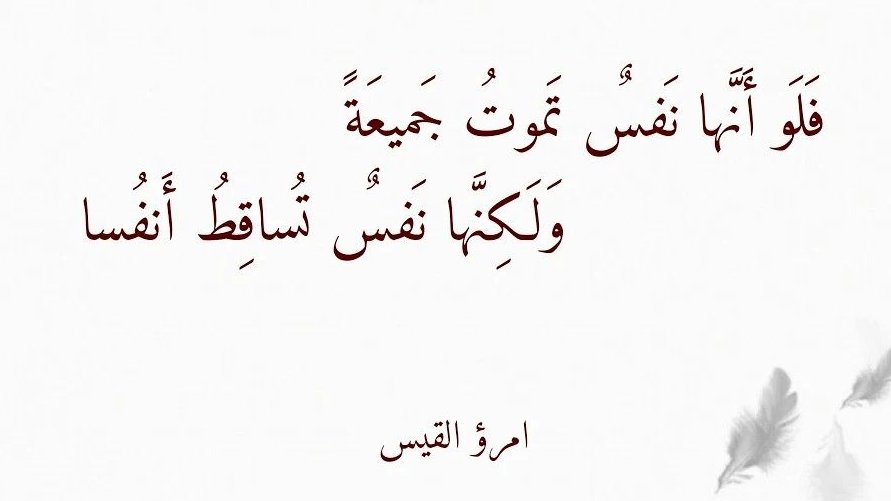 فَلَو أَنَّها نَفسٌ تَموتُ جَميعَةً
وَلَكِنَّها نَفسٌ تُساقِطُ أَنفُسا
امرؤ القيس